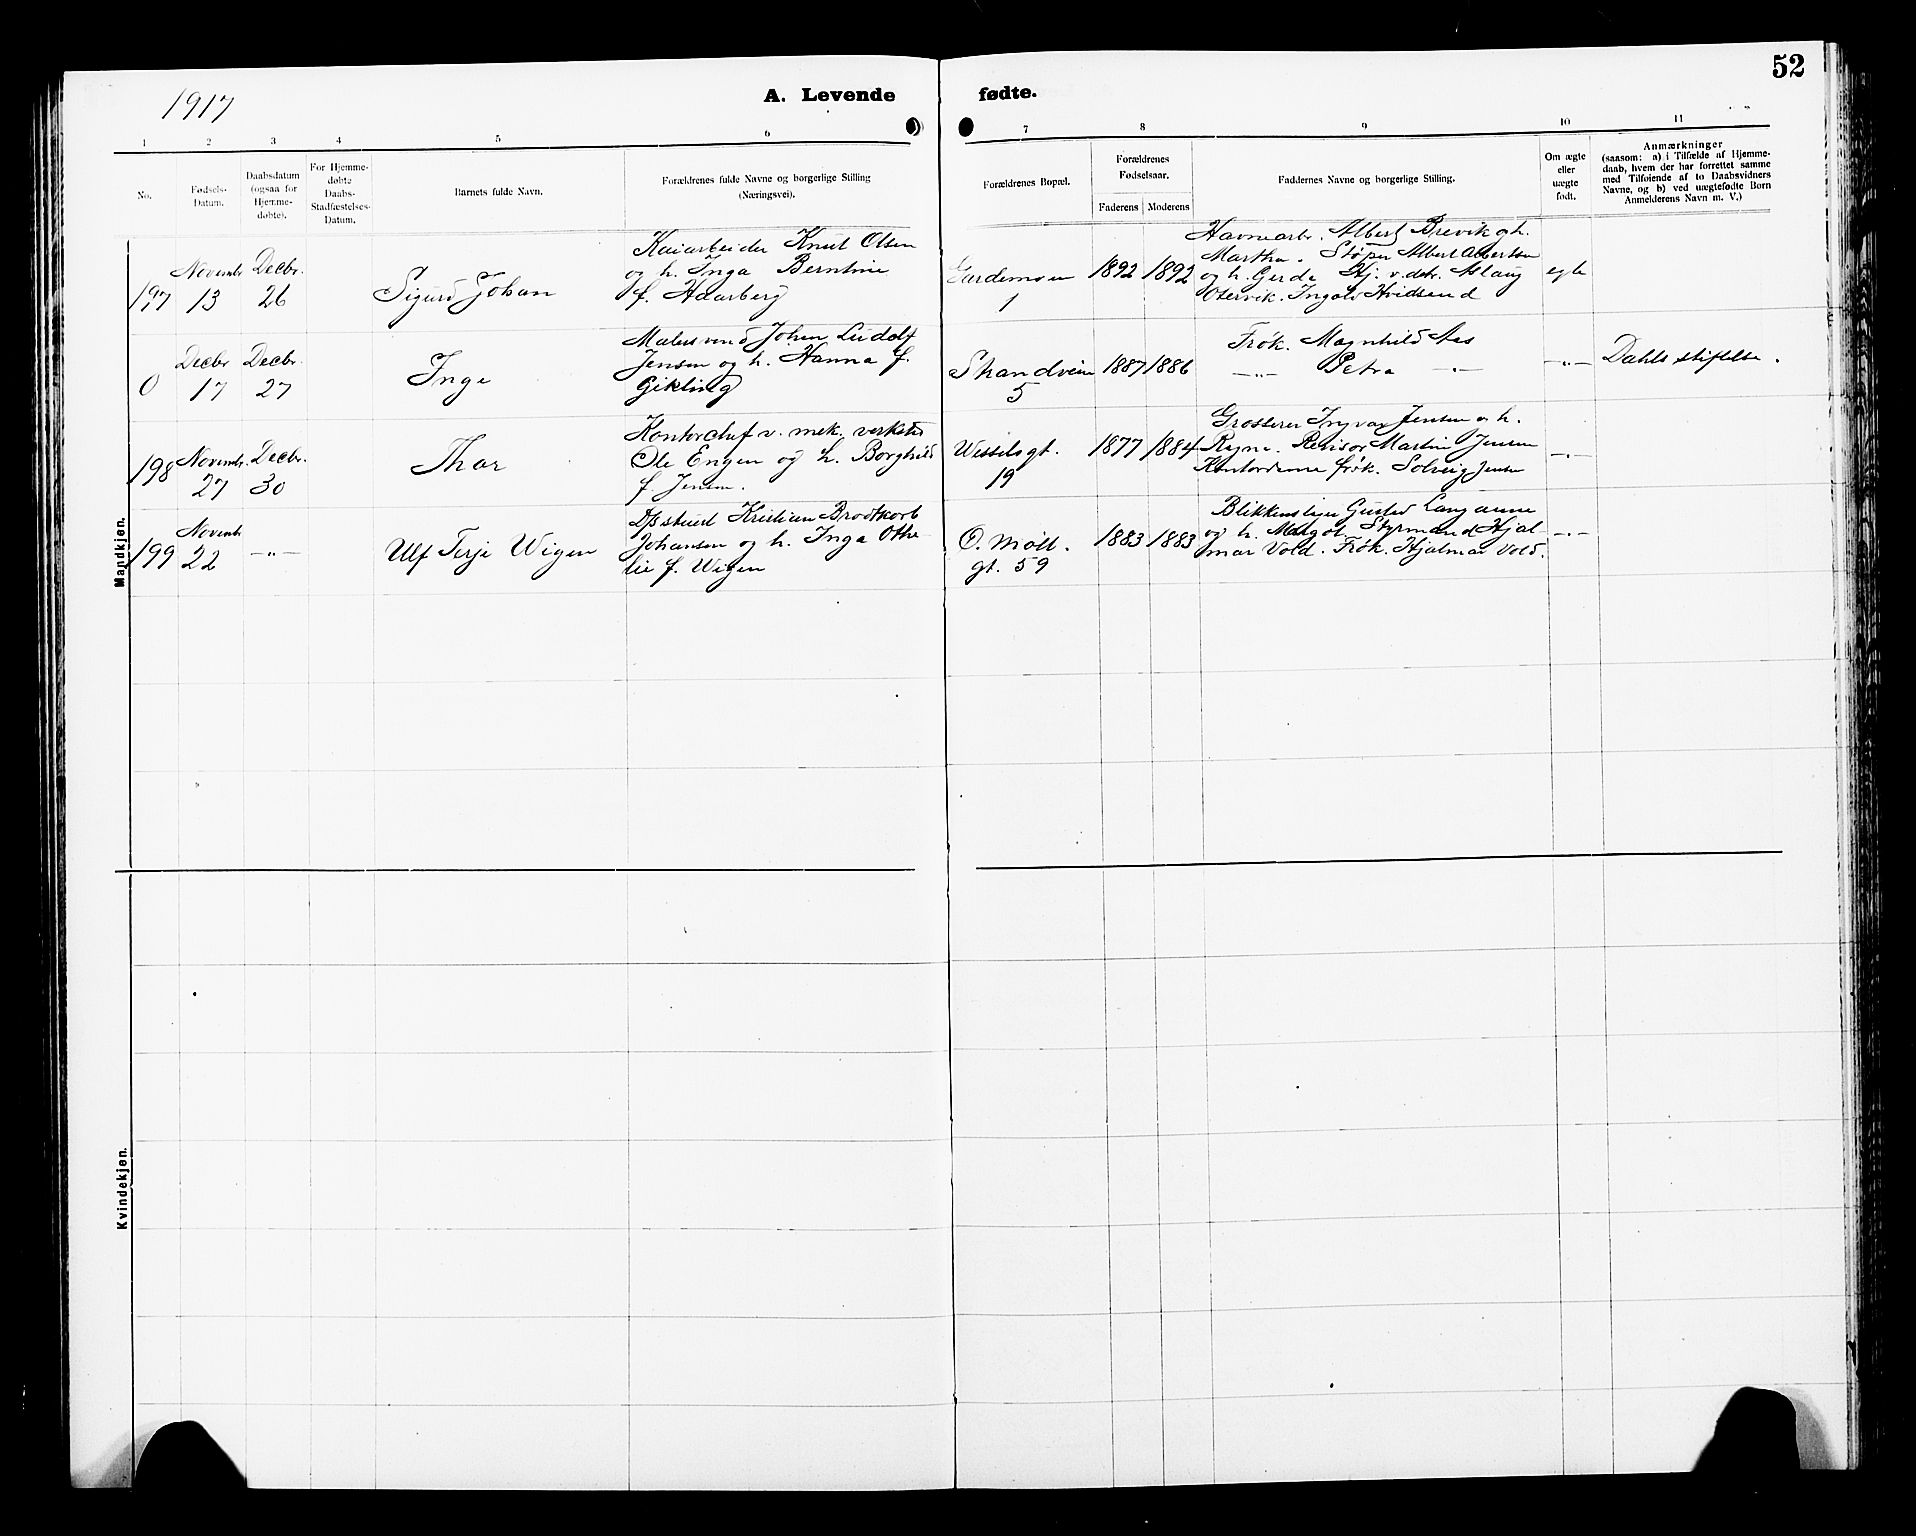 52
1917
A. Levende fødte.
1 2 3 4 5 6 7 8 9 10 11
No.
Fødsels-
Datum.
Daabsdatum
(ogsaa for
Hjemme-
døbte).
For Hjemme-
døbte
Daabs-
Stadfæstelses-
Datum.
Barnets fulde Navn.
Forældrenes fulde Navne og borgerlige Stilling
(Næringsvei).
Forældrenes Bopæl.
Forældrenes
Fødselsaar.
Faderens Moderens
Faddernes Navne og borgerlige Stilling.
Om ægte
eller
uægte
født.
Anmærkninger
(saasom: a) i Tilfælde af Hjemme-
daab, hvem der har forrettet samme
med Tilføiende af to Daabsvidners
Navne, og b) ved uægtefødte Børn
Anmelderens Navn m. V.)
Mandkjøn.
197
Novembr.
13
Decbr.
26
Sigurd Johan
Kaiarbeider Knut Olsen
og h. Inga Berntine
f. Haarberg
Gardemoen
1
1892 1892
Havnearb. Albert Brevik og h.
Martha. Støper Albert Albertsen
og h. Gerda Hj. v. dstr. Aslaug
Otervik. Ingolv Hvidsand
egte
0
Decbr
17
Decbr.
27
Inge
Malersvend Johan Ludolf
Jensen og h. Hanna f.
Gikling
Strandveien
5
1887 1886
Frøk. Magnhild Aas
—"— Petra —"—
—"—
Dahls stiftelse.
198
Novembr.
27
Decbr.
30
Thor
Kontorchef v. mek. verksted
Ole Engen og h. Borghild
f. Jensen.
Wesselsgt.
19
1877 1884
Grosserer Ingvar Jensen og h.
Ragna. Revisor Martin Jensen
Kontordame frøk. Solveig Jensen
—"—
199
Novembr
22
—"—
Ulf Terje Wigen
Dpskstuert Kristian Brodtkorb
Johansen og h. Inga Othe
lie f. Wigen
Ø. Møll.
gt. 59
1883 1883
Blikkenslager Gustav Langaune
og h. Margot. Styrmand Hjal
mar Vold. Frøk. Hjalmar Vold.
—"—
Kvindekjøn.